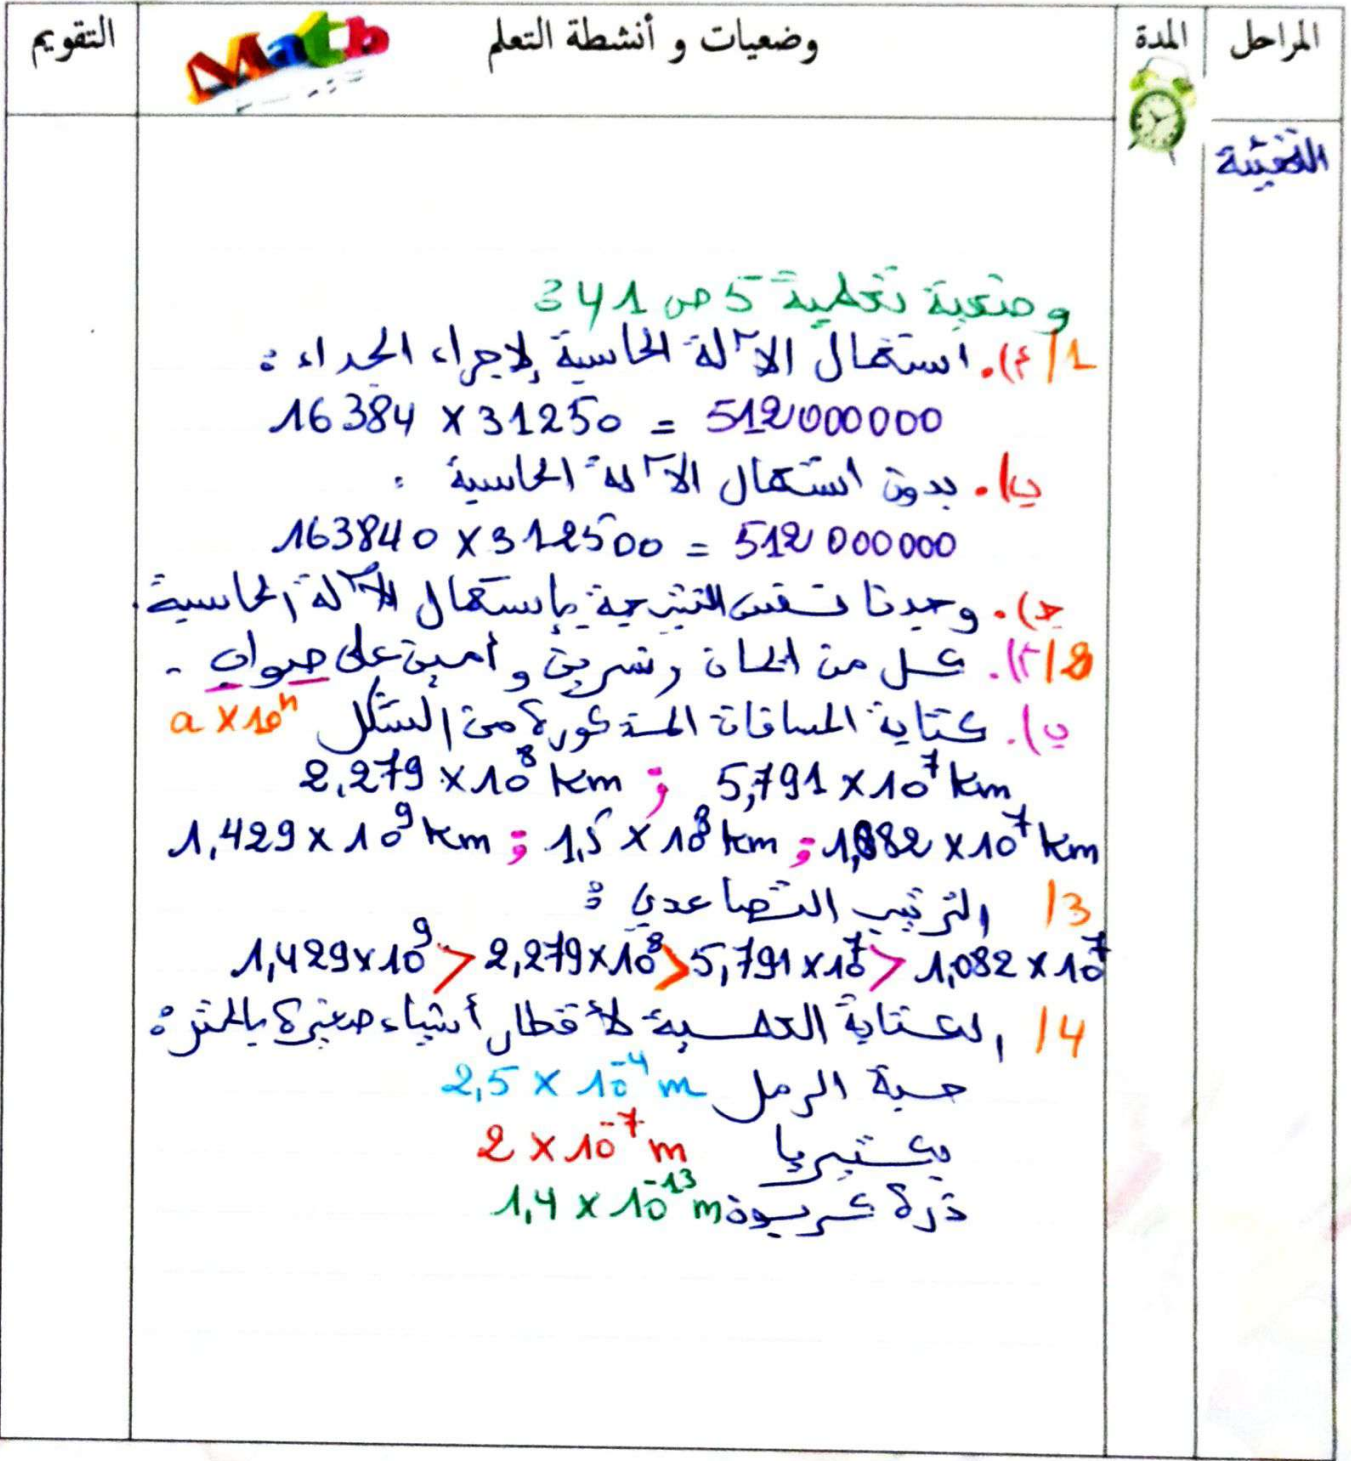 المراحل
المدة
وضعيات و أنشطة التعلم
Math
التقويم
وضعية تعلمية 5 ص 341
1/ أ). استعمال الآلة الحاسبة لإجراء الجداء :
16384 × 31250 = 512000000
ب). بدون استعمال الآلة الحاسبة :
163840 × 312500 = 512 000000
ج). وجدنا نفس النتيجة بإستعمال الآلة الحاسبة.
2/ أ). كل من الحان و نسرين و أمين على صواب .
ب). كتابة المسافات المذكورة من الشكل a × 10ⁿ
5,791 × 10⁷ km ; 2,279 × 10⁸ km
1,082 × 10⁷ km ; 1,5 × 10⁸ km ; 1,429 × 10⁹ km
3/ الترتيب التصاعدي :
1,429×10⁹ > 2,279×10⁸ > 5,791×10⁷ > 1,082×10⁷
4/ الكتابة العلمية لأقطار أشياء صغيرة بالمتر :
حبة الرمل 2,5 × 10⁻⁴ m
بكتيريا 2 × 10⁻⁷ m
ذرة كربون 1,4 × 10⁻¹³ m